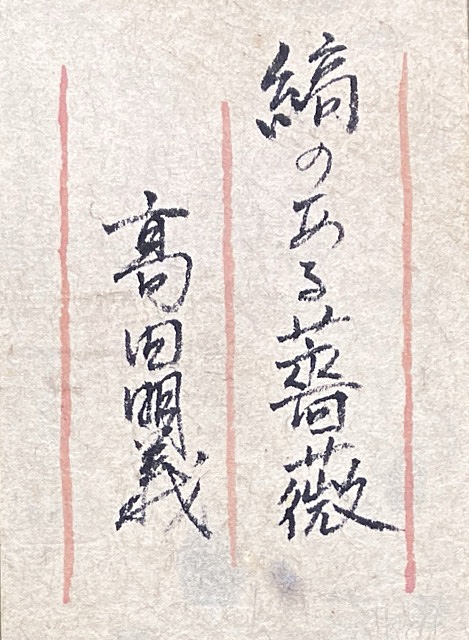 縞のある薔薇
高田明義